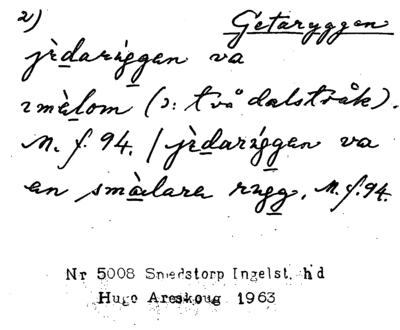 2) Getaryggen
jèdaríggen va
imèlom (ɔ: två dalstråk).
M. f. 94. / jèdaríggen va
en smàlara rugg, M. f. 94.
Nr 5008 Smedstorp Ingelst. hd
Hugo Areskoug 1963